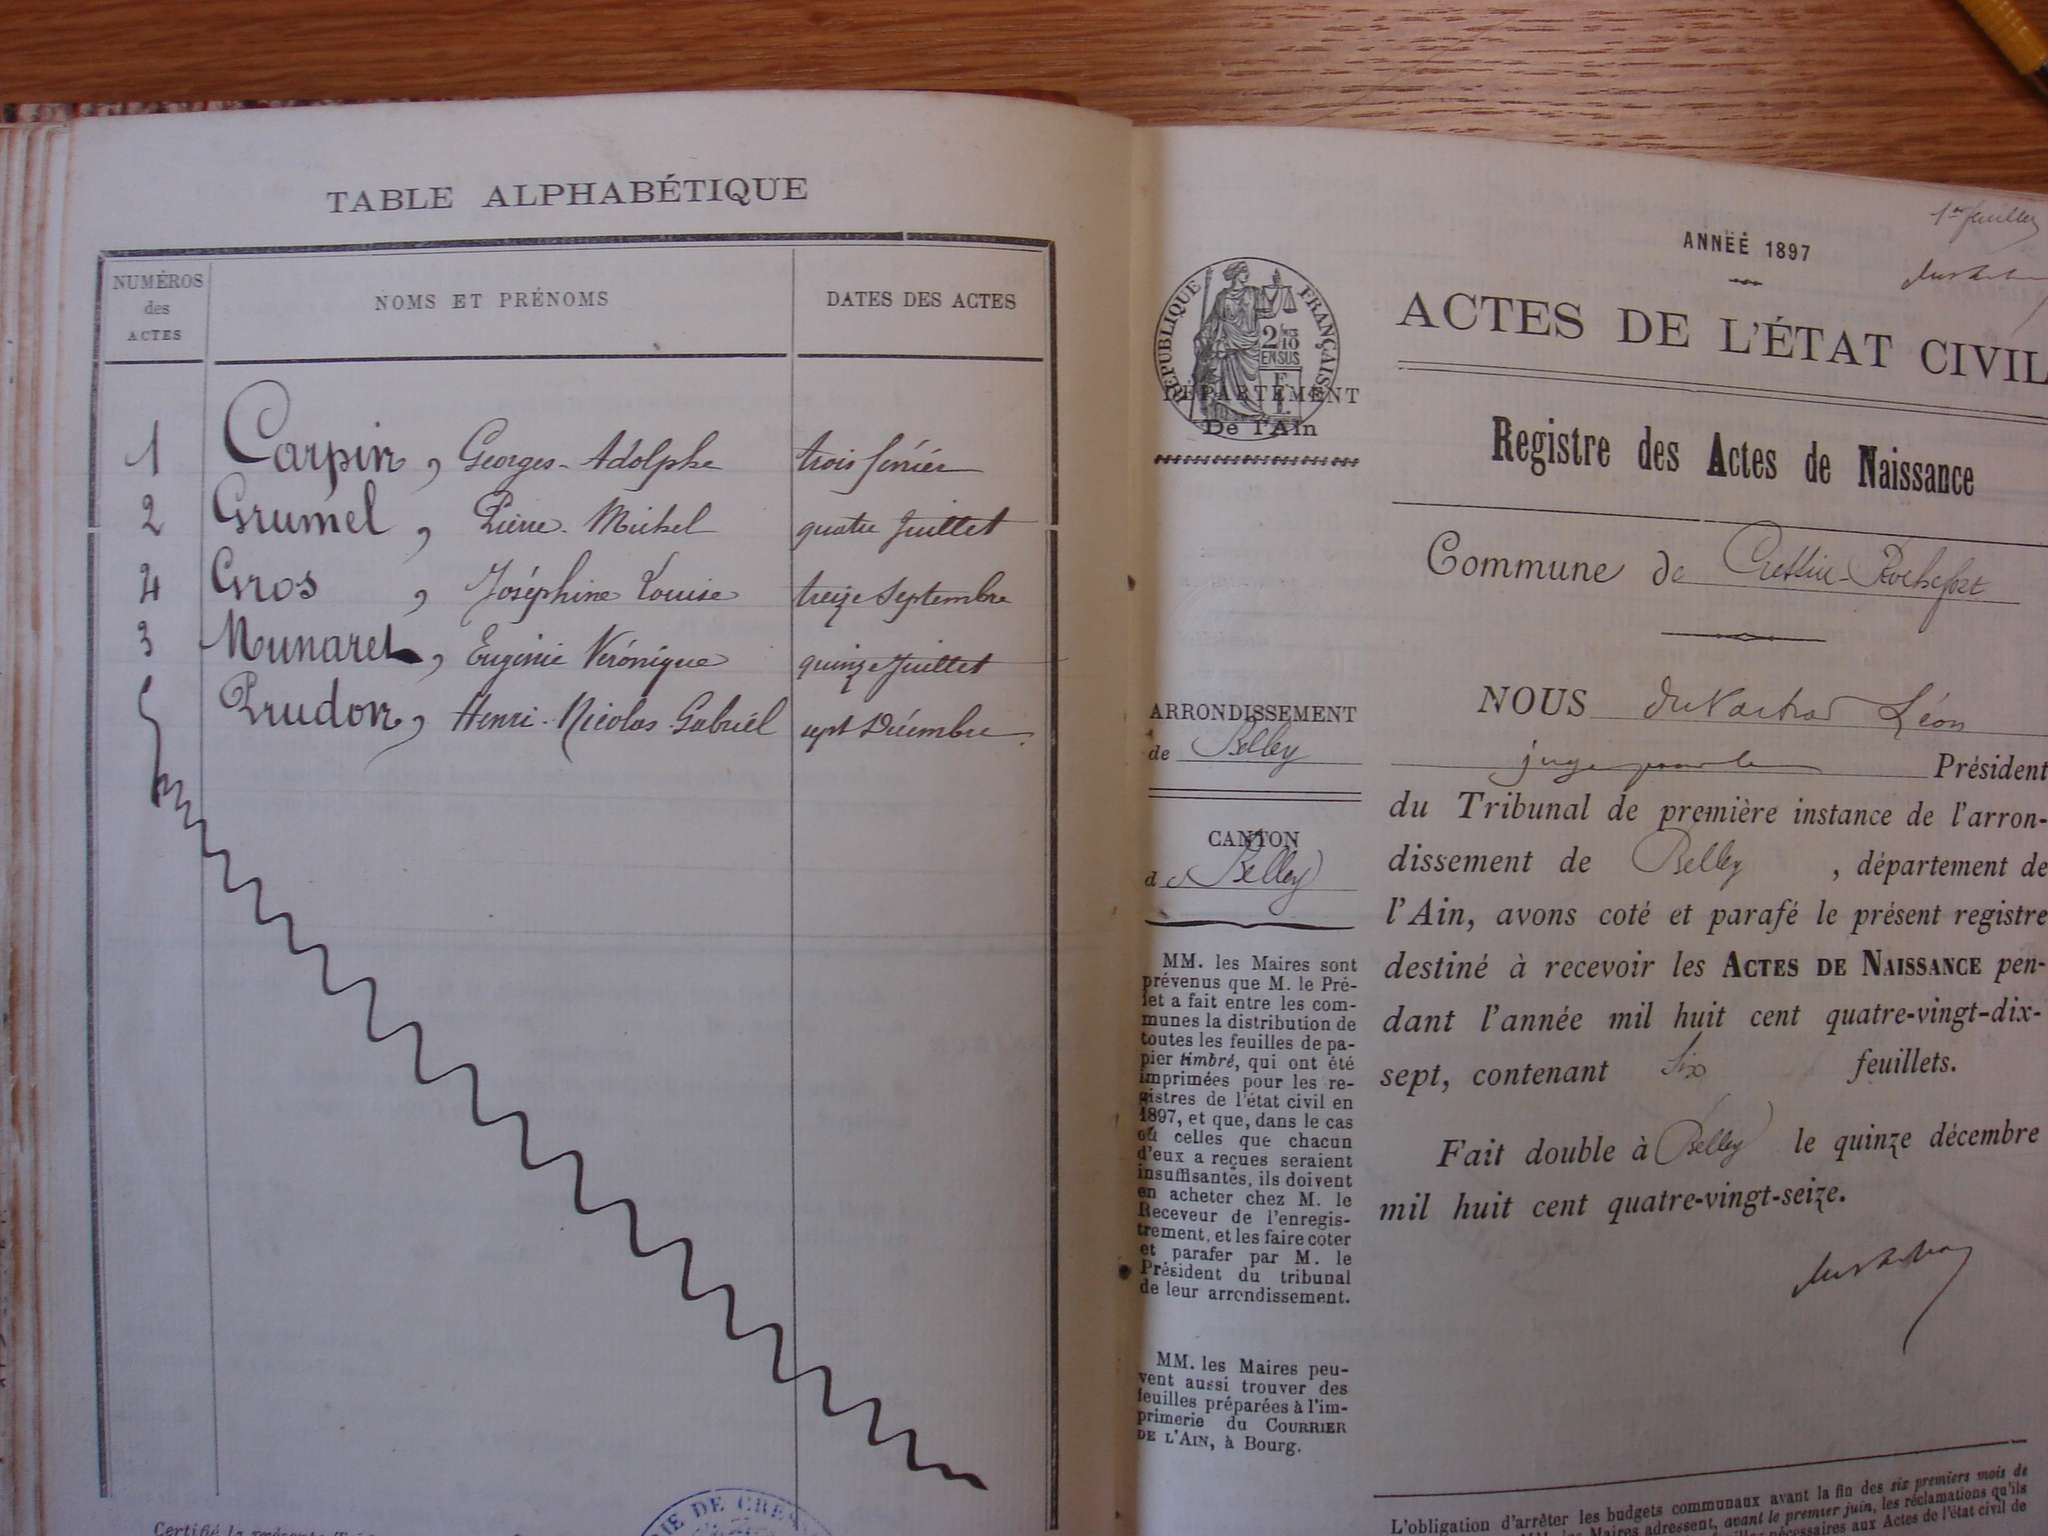 TABLE ALPHABÉTIQUE
NUMÉROS
des
ACTES
NOMS ET PRÉNOMS
DATES DES ACTES
1 Carpin, Georges-Adolphe trois février
2 Grumel, Pierre-Michel quatre Juillet
4 Gros, Joséphine Louise treize Septembre
3 Munaret, Eugénie Véronique quinze Juillet
5 Prudon, Henri-Nicolas-Gabriel sept Décembre
Certifié la présente
DE CRES
1er feuillet
ANNÉE 1897
RÉPUBLIQUE FRANÇAISE
2/10
EN SUS
DÉPARTEMENT
De l'Ain
ACTES DE L'ÉTAT CIVIL
Registre des Actes de Naissance
Commune de Cressin-Rochefort
ARRONDISSEMENT
de Belley
CANTON
de Belley
MM. les Maires sont
prévenus que M. le Pré-
fet a fait entre les com-
munes la distribution de
toutes les feuilles de pa-
pier timbré, qui ont été
imprimées pour les re-
gistres de l'état civil en
1897, et que, dans le cas
où celles que chacun
d'eux a reçues seraient
insuffisantes, ils doivent
en acheter chez M. le
Receveur de l'enregis-
trement, et les faire coter
et parafer par M. le
Président du tribunal
de leur arrondissement.
MM. les Maires peu-
vent aussi trouver des
feuilles préparées à l'im-
primerie du COURRIER
DE L'AIN, à Bourg.
NOUS Léon
juge Président
du Tribunal de première instance de l'arron-
dissement de Belley, département de
l'Ain, avons coté et parafé le présent registre
destiné à recevoir les ACTES DE NAISSANCE pen-
dant l'année mil huit cent quatre-vingt-dix-
sept, contenant Six feuillets.
Fait double à Belley le quinze décembre
mil huit cent quatre-vingt-seize.
L'obligation d'arrêter les budgets communaux avant la fin des six premiers mois de
les Maires adressent, avant le premier juin, les réclamations qu'ils
nécessaires aux Actes de l'état civil de